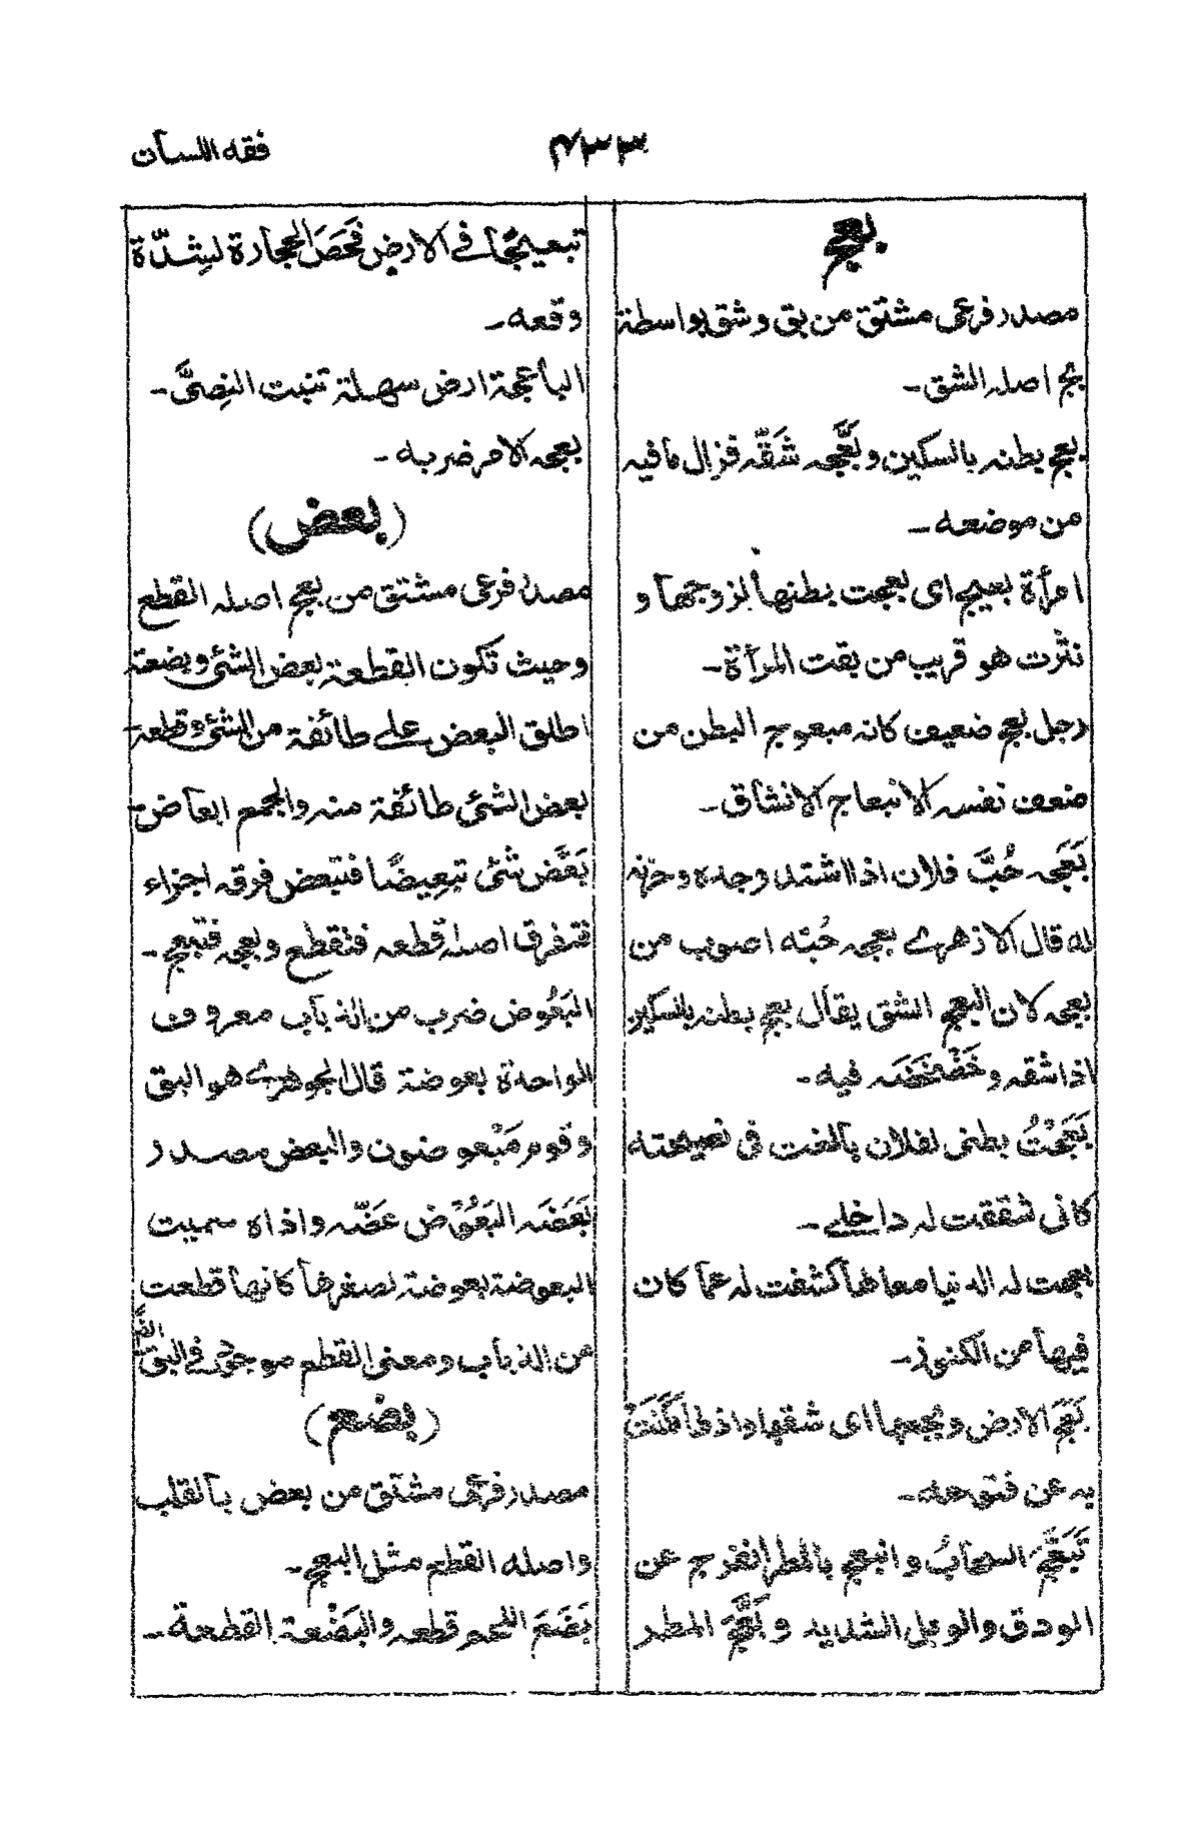 فقه اللسان
٤٣٣
بعج
مصدر فرعى مشتق من بق وشق بواسطة
بج اصله الشق۔
بعج بطنه بالسكين وبَعَّجه شَقّه فزال مافيه
من موضعه۔
امرأة بعيج اى بعجت بطنها لزوجها و
نثرت هو قريب من بقت المرأة۔
رجل بعج ضعيف كانه مبعوج البطن من
ضعف نفسه الانبعاج الانشقاق۔
بَعَجَه حُبَّ فلان اذا اشتد وجده وحزنه
له قال الازهرے بعجه حُبّه اصوب من
بعجه لان البعج الشق يقال بعج بطنه بالسكين
اذا شقه وخَضْخَضَه فيه۔
بَعَجْتُ بطنى لفلان بالغت فى نصيحته
كانى شققت له داخلے۔
بعجت له الدنيا معاها كشفت له عما كان
فيها من الكنوز۔
بَعَجَ الارض وبجعها اى شقها واذلها
به عن فتق حه۔
تَبَعَّجَ السحابُ وانبعج بالمطر انفرج عن
الودق والوبل الشديد وبَعَّجَ المطر
تبعيجًا فے الارض فحَصَ الحجارة لشِدّة
وقعه۔
الباعجة ارض سهلة تنبت النِصىَّ۔
بعجه الامر ضربه۔
(بعض)
مصدر فرعى مشتق من بعج اصله القطع
وحيث تكون القطعة بعض الشئ وبضعته
اطلق البعض علے طائفة من الشئ وقطعة
بعض الشئ طائفة منه والجمع ابعاض۔
بَعَّض شئى تبعِيضًا فتبعض فرقه اجزاء
فتفرق اصله قطعه فتقطع وبعجه فتبعج۔
البَعُوض ضرب من الذباب معروف
الواحدة بعوضة قال الجوهرے هو البق
وقوم مَبْعوضون والبعض مصدر
بَعَضَه البَعُوْض عَضّه واذاه سميت
البعوضة بعوضة لصغرها كانها قطعت
من الذباب ومعنى القطع موجود فے البق
(بضع)
مصدر فرعى مشتق من بعض بالقلب
واصله القطع مثل البعج۔
بَضَعَ اللحم قطعه والبَضْعة القطعة۔